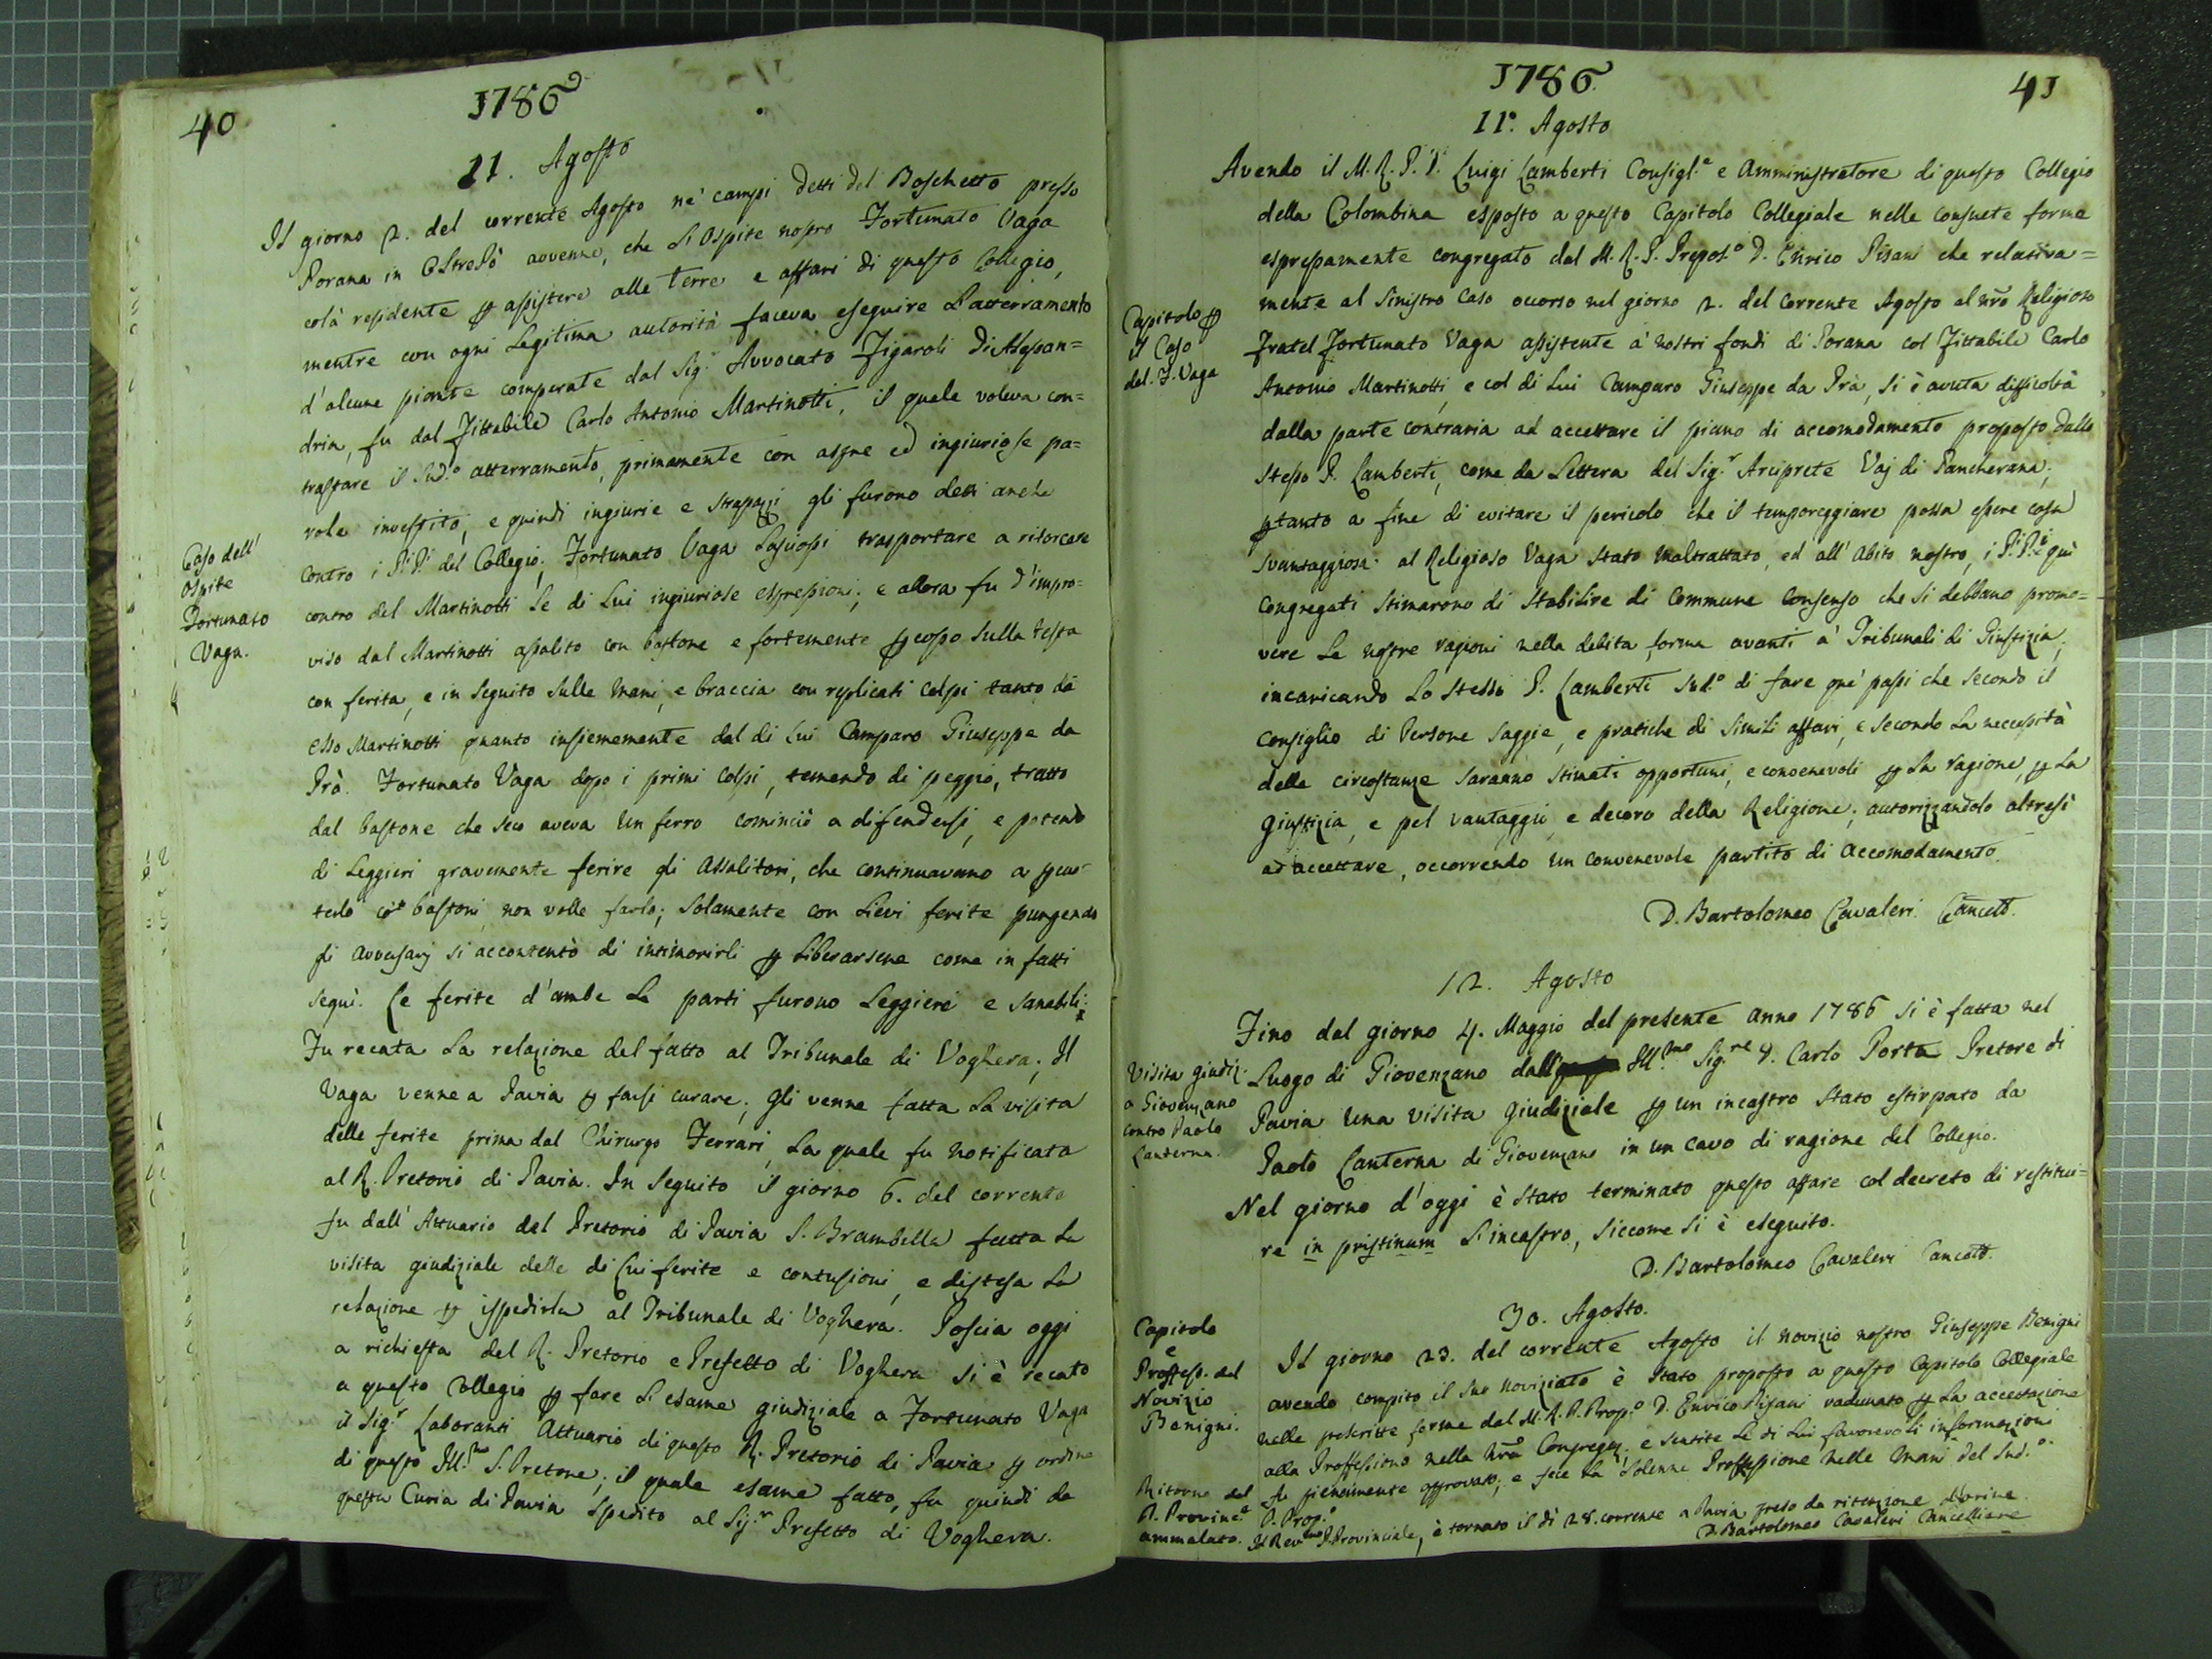 40
1786
11. Agosto
Il giorno 2. del corrente Agosto ne' campi detti del Boschetto presso
Porana in OltrePò avvenne, che l'Ospite nostro Fortunato Vaga
colà residente p assistere alle terre e affari di questo Collegio,
mentre con ogni Legitima autorità faceva eseguire L'atterramento
d'alcune piante comperate dal Sig.r Avvocato Figaroli di Alessan=
dria, fu dal Fittabile Carlo Antonio Martinotti, il quale voleva con=
trastare il Sud.o atterramento, primamente con aspre ed ingiuriose pa=
role investito, e quindi ingiurie e strapazzi gli furono detti anche
contro i P.P. del Collegio; Fortunato Vaga Lasciossi trasportare a ritorcere
contro del Martinotti Le di Lui ingiuriose espressioni; e allora fu d'impro=
viso dal Martinotti assalito con bastone e fortemente pcosso sulla testa
con ferita, e in seguito sulle mani, e braccia con replicati colpi tanto da
esso Martinotti quanto insiememente dal di Lui Camparo Giuseppe da
Prà. Fortunato Vaga dopo i primi colpi, temendo di peggio, tratto
dal bastone che seco aveva un ferro cominciò a difendersi, e potendo
di Leggieri gravemente ferire gli Assalitori, che continuavano a pcuo=
terlo co' bastoni non volle farlo; solamente con Lievi ferite pungendo
gli Avversarj si accontentò di intimorirli p Liberarsene come in fatti
seguì. Le ferite d'ambe Le parti furono Leggiere e sanabili:
Fu recata La relazione del fatto al Tribunale di Voghera; Il
Vaga venne a Pavia p farsi curare; gli venne fatta La visita
delle ferite prima dal Chirurgo Ferrari, La quale fu notificata
al R. Pretorio di Pavia. In Seguito il giorno 6. del corrente
fu dall'Attuario del Pretorio di Pavia S. Brambilla fatta La
visita giudiziale delle di Lui ferite e contusioni, e distesa La
relazione p ispedirla al Tribunale di Voghera. Poscia oggi
a richiesta del R. Pretorio e Prefetto di Voghera si è recato
a questo Collegio p fare L'esame giudiziale a Fortunato Vaga
il Sig.r Laboranti Attuario di questo R. Pretorio di Pavia p ordine
di questo Ill.mo S. Pretore; il quale esame fatto, fu quindi da
questa Curia di Pavia spedito al Sig.r Prefetto di Voghera.
Caso dell'
Ospite
Fortunato
Vaga.
1786.
41
11.° Agosto
Avendo il M. R. P. D. Luigi Lamberti Consigl.e e Amministratore di questo Collegio
della Colombina esposto a questo Capitolo Collegiale nelle consuete forme
espressamente congregato dal M. R. P. Prepos.o D. Enrico Pisani che relativa=
mente al sinistro caso occorso nel giorno 2. del Corrente Agosto al nrō Religioso
Fratel Fortunato Vaga assistente a' nostri fondi di Porana col Fittabile Carlo
Antonio Martinotti, e col di Lui Camparo Giuseppe da Prà, si è avuta difficoltà
dalla parte contraria ad accettare il piano di accomodamento proposto dallo
stesso P. Lamberti, come da Lettera del Sig.r Arciprete Vaj di Pancherana;
ptanto a fine di evitare il pericolo che il temporeggiare possa essere cosa
svantaggiosa al Religioso Vaga stato maltrattato, ed all'Abito nostro, i P.P. quì
congregati stimarono di stabilire di commune consenso che si debbano promo=
vere Le nostre ragioni nella debita forma avanti a' Tribunali di Giustizia,
incaricando Lo stesso P. Lamberti Sud.o di fare que' passi che secondo il
consiglio di Persone saggie, e pratiche di simili affari, e secondo La necessità
delle circostanze saranno stimati opportuni, e convenevoli p La ragione, p La
giustizia, e pel vantaggio, e decoro della Religione; autorizzandolo altresì
ad accettare, occorrendo un convenevole partito di accomodamento.
D. Bartolomeo Cavaleri Cancell.
Capitolo p
il Caso
del F. Vaga
12. Agosto
Fino dal giorno 4. Maggio del presente anno 1786 si è fatta nel
Luogo di Giovenzano dall' Ill.mo Sig.re D. Carlo Porta Pretore di
Pavia una visita giudiziale p un incastro stato estirpato da
Paolo Lanterna di Giovenzano in un cavo di ragione del Collegio.
Nel giorno d'oggi è stato terminato questo affare col decreto di restitui=
re in pristinum L'incastro, siccome si è eseguito.
D. Bartolomeo Cavaleri Cancell.
Visita giudiz.
a Giovenzano
contro Paolo
Lanterna.
30. Agosto.
Il giorno 23. del corrente Agosto il novizio nostro Giuseppe Benigni
avendo compito il suo noviziato è stato proposto a questo Capitolo Collegiale
nelle prescritte forme dal M. R. P. Prop.o D. Enrico Pisani radunato p La accettazione
alla Proffessione nella nrā Congregaz. e sentite Le di Lui favorevoli informazioni
fu pienamente approvato; e fece La solenne Proffessione nelle mani del Sud.o
P. Prop.o
Il Rev.mo P. Provinciale, è tornato il dì 28. corrente a Pavia preso da ritenzione d'orine.
D. Bartolomeo Cavaleri Cancelliere
Capitolo
e
Proffess. del
Novizio
Benigni.
Ritorno del
P. Provinc.e
ammalato.